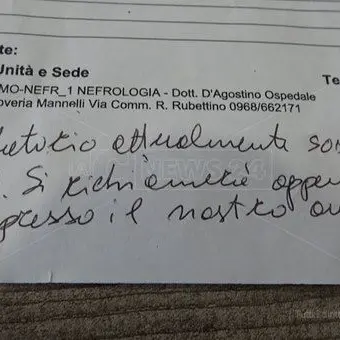 te:
Unità e Sede
Te
MO-NEFR_1 NEFROLOGIA - Dott. D'Agostino Ospedale
overia Mannelli Via Comm. R. Rubettino 0968/662171
attualmente so
. Si richiamerà appen
presso il nostro
NEWS24